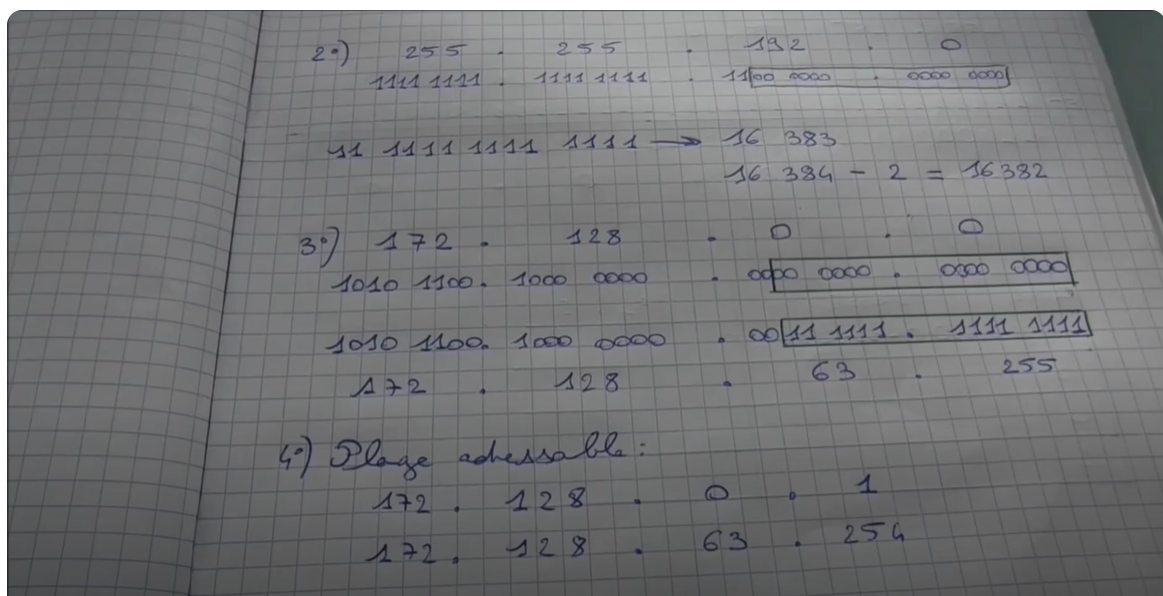 2°) 255 . 255 . 192 . 0
1111 1111 . 1111 1111 . 1100 0000 . 0000 0000
11 1111 1111 1111 → 16 383
16 384 - 2 = 16382
3°) 172 . 128 . 0 . 0
1010 1100. 1000 0000 . 0000 0000 . 0000 0000
1010 1100. 1000 0000 . 0011 1111 . 1111 1111
172 . 128 . 63 . 255
4°) Plage adressable :
172 . 128 . 0 . 1
172 . 128 . 63 . 254